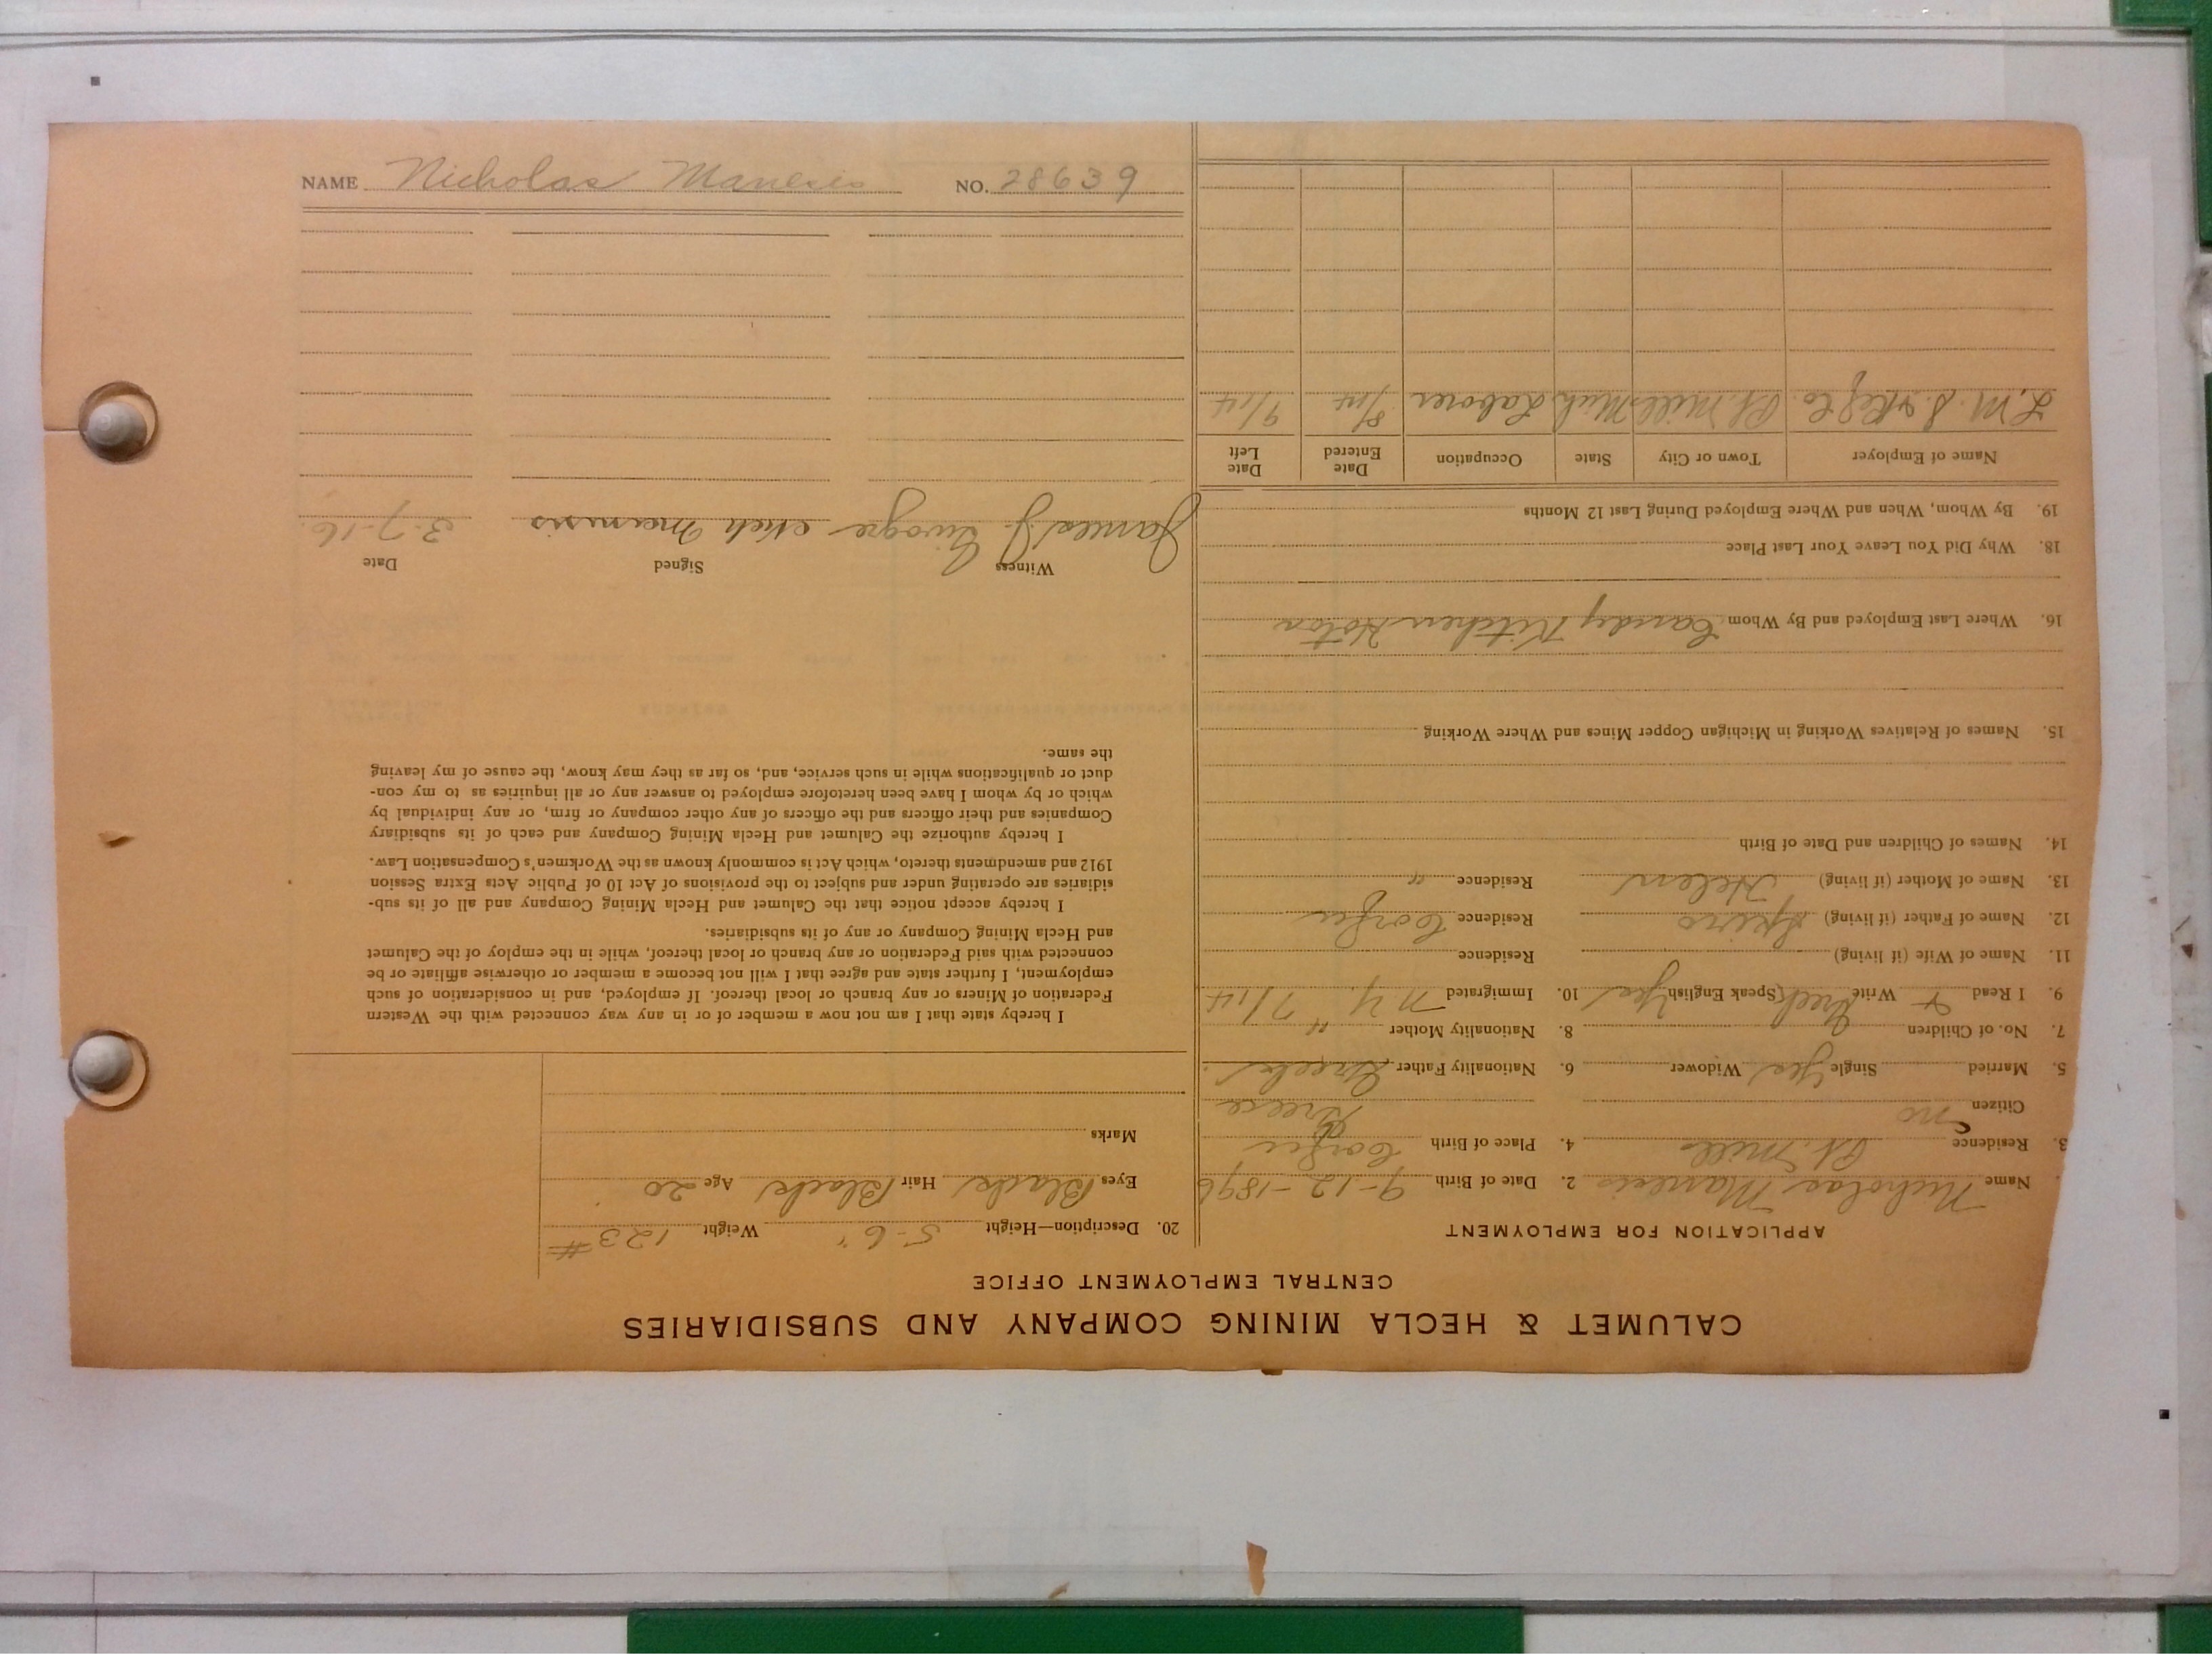 CALUMET & HECLA MINING COMPANY AND SUBSIDIARIES
CENTRAL EMPLOYMENT OFFICE
APPLICATION FOR EMPLOYMENT
Name Nicholas Manesis 2. Date of Birth 9-12-1896
3. Residence Pt. Mills 4. Place of Birth Corfu
Citizen no Greece
5. Married Single Yes Widower 6. Nationality Father Greek
7. No. of Children 8. Nationality Mother "
9. I Read & Write Greek (Speak English Yes 10. Immigrated N Y. 7/14
11. Name of Wife (if living) Residence
12. Name of Father (if living) Speiro Residence Corfu
13. Name of Mother (if living) Helen Residence "
14. Names of Children and Date of Birth
15. Names of Relatives Working in Michigan Copper Mines and Where Working
16. Where Last Employed and By Whom Candy Kitchen Hoton
18. Why Did You Leave Your Last Place
19. By Whom, When and Where Employed During Last 12 Months
Name of Employer Town or City State Occupation Date Entered Date Left
L. M. S. & Ref Co. Pt Mills Mich Laborer 8/14 9/14
20. Description—Height 5-6" Weight 123 #
Eyes Black Hair Black Age 20
Marks
I hereby state that I am not now a member of or in any way connected with the Western
Federation of Miners or any branch or local thereof. If employed, and in consideration of such
employment, I further state and agree that I will not become a member or otherwise affiliate or be
connected with said Federation or any branch or local thereof, while in the employ of the Calumet
and Hecla Mining Company or any of its subsidiaries.
I hereby accept notice that the Calumet and Hecla Mining Company and all of its sub-
sidiaries are operating under and subject to the provisions of Act 10 of Public Acts Extra Session
1912 and amendments thereto, which Act is commonly known as the Workmen's Compensation Law.
I hereby authorize the Calumet and Hecla Mining Company and each of its subsidiary
Companies and their officers and the officers of any other company or firm, or any individual by
which or by whom I have been heretofore employed to answer any or all inquiries as to my con-
duct or qualifications while in such service, and, so far as they may know, the cause of my leaving
the same.
Witness Signed Date
James J. Nick Manesis 3-7-16.
NAME Nicholas Manesis NO. 28639